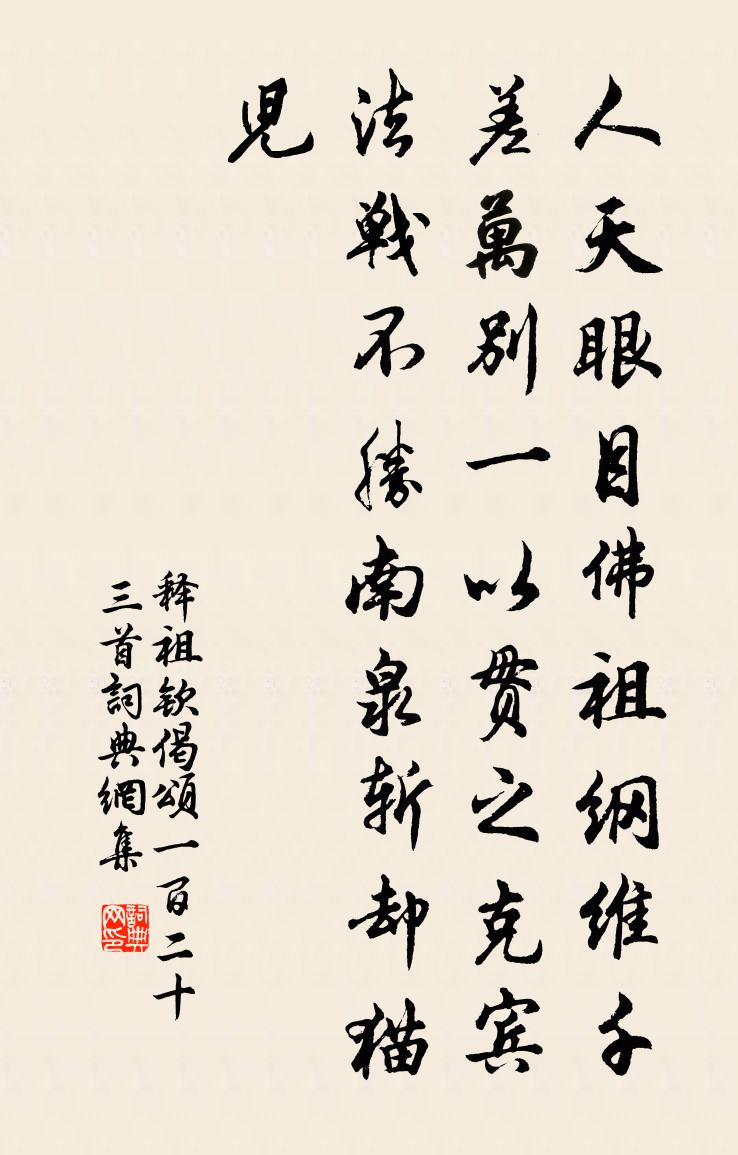 人天眼目佛祖纲維千
差萬别一以贯之克宾
法戦不勝南泉斩却猫
児
释祖钦偈颂一百二十
三首詞典網集
詞典网印